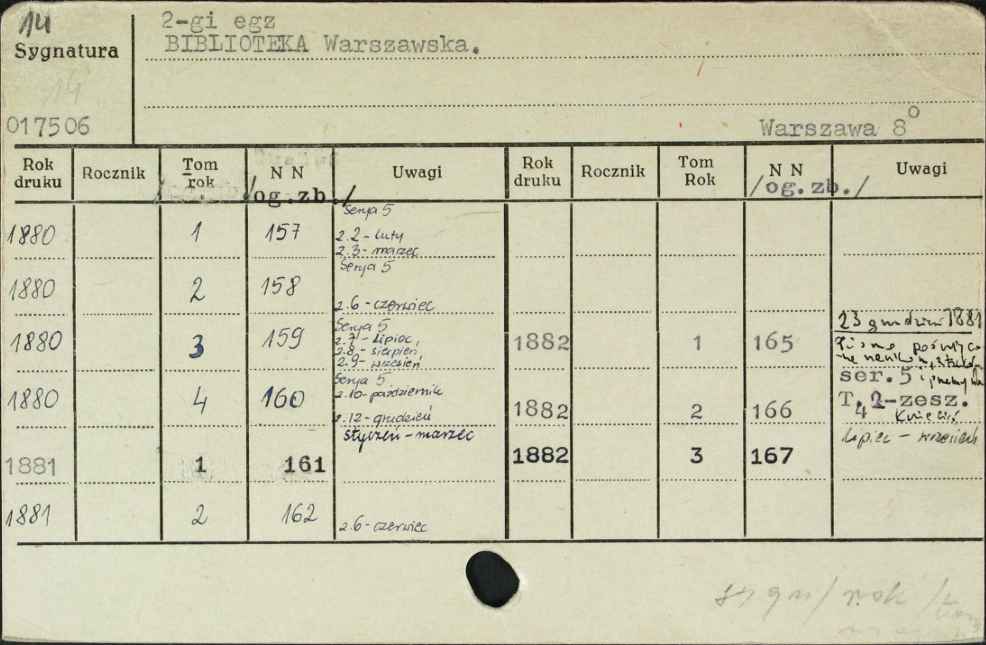 14
Sygnatura
14
017506
2-gi egz
BIBLIOTEKA Warszawska.
Warszawa 8°
Rok druku Rocznik Tom rok N N /og.zb./ Uwagi Rok druku Rocznik Tom Rok N N /og.zb./ Uwagi
1880 1 157 Serja 5
z.2 - luty
z.3 - marzec
1880 2 158 Serja 5
z.6 - czerwiec
1880 3 159 Serja 5
z.7 - lipiec,
z.8 - sierpień
z.9 - wrzesień
1880 4 160 Serja 5
z.10 - październik
z.12 - grudzień
1881 1 161 styczeń - marzec
1881 2 162 z.6 - czerwiec
1882 1 165 23 grudzień 1881
Pismo poświęcone naukom, sztukom
ser. 5 i przemysłowi
1882 2 166 T. 2-zesz.
4 kwiecień
1882 3 167 lipiec - wrzesień
sygn/rok/